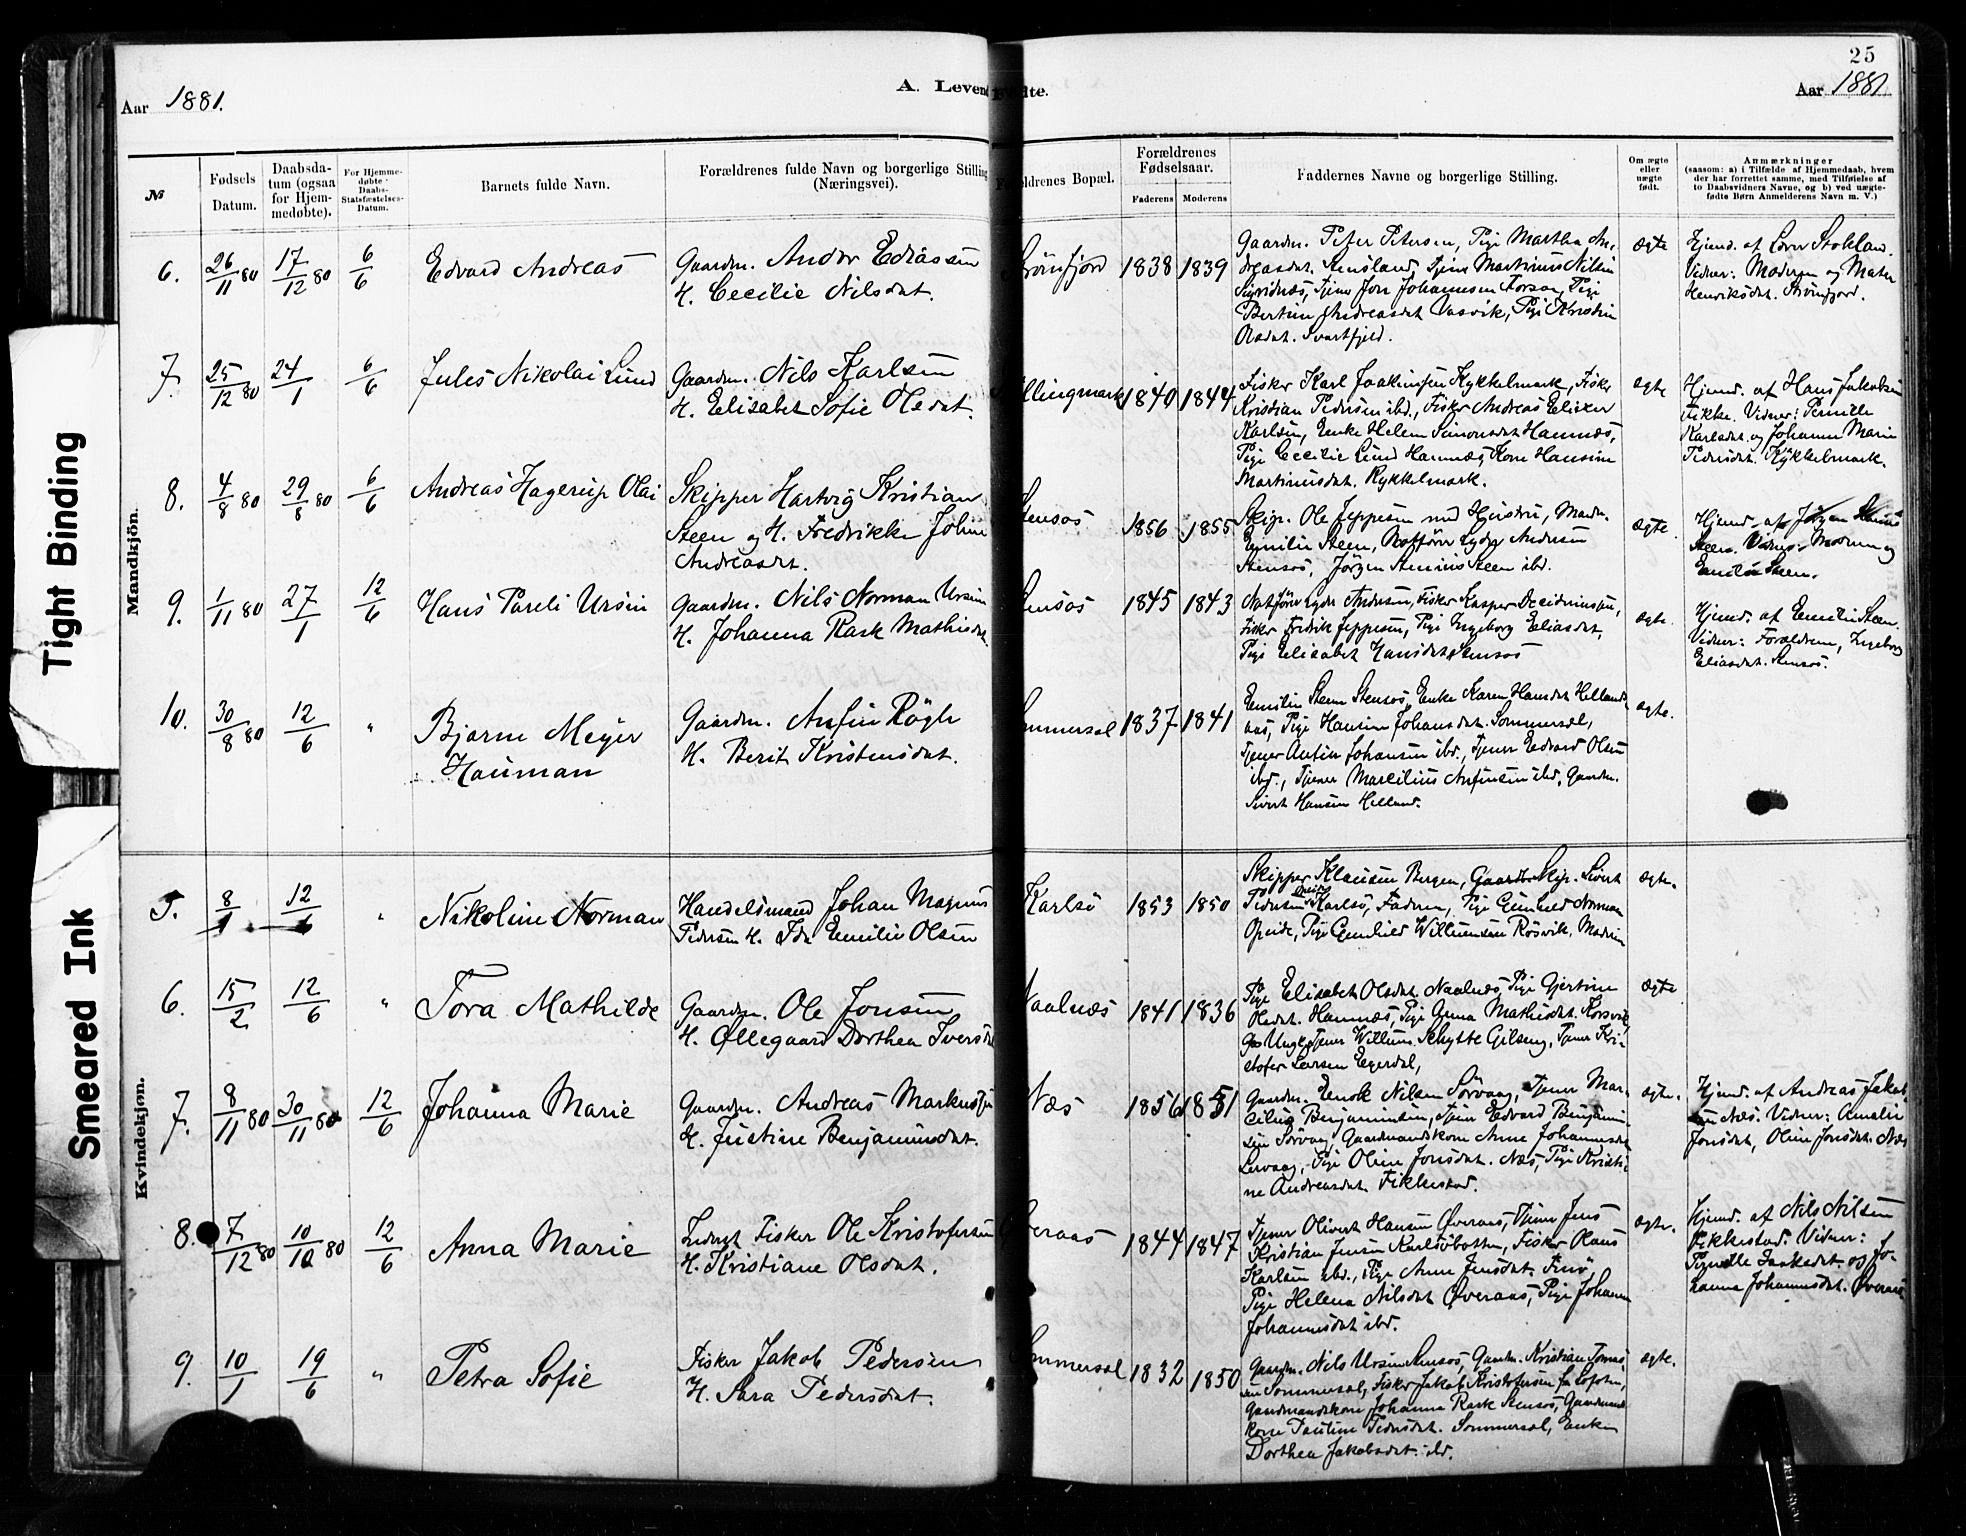 25
Aar 1881.
A. Levendefødte.
Aar 1881
№
Fødsels Datum.
Daabsdatum (ogsaa for Hjemmedøbte).
For Hjemmedøbte Daabs-Statsfæstelses-Datum.
Barnets fulde Navn.
Forældrenes fulde Navn og borgerlige Stilling (Næringsvei).
Forældrenes Bopæl.
Forældrenes Fødselsaar.
Faderens
Moderens
Faddernes Navne og borgerlige Stilling.
Om ægte eller uægte født.
Anmærkninger
(saasom: a) i Tilfælde af Hjemmedaab, hvem
der har forrettet samme, med Tilføielse af
to Daabsvidners Navne, og b) ved uægte-
fødte Børn Anmelderens Navn m. V.)
Tight Binding
Smeared Ink
Mandkjön.
6. 26/11 80 17/12 80 6/6 Edvard Andreas
Gaardm. Andor Ediassen
H. Cecilie Nilsdat.
1838 1839
Gaardm. Peter Petersen, Pige Martha An-
ægte
7. 25/12 80 24/1 6/6 Jules Nikolai Lund
Gaardm. Nils Karlsen
H. Elisabet Sofie Olsdat.
llingmark 1840 1844
Kristian Pedersen ibd., Fisker Andreas
Karlsen, Enke Helene Simonsdat Hamnæs,
Pige Cecilie Lund Hamnæs, Kone Hansine
Martinusdat. Kykkelmark.
ægte
Hjemd. af Hans Jakobsen
Karlsdat. og Johanne Marie
Pedersdat. Kykkelmark.
8. 4/8 80 29/8 80 6/6 Andreas Hagerup Olai
Skipper Hartvig Kristian
Steen og H. Fredrikke Johne
Andreasdt.
Stensøs 1856 1855
Skip. Ole Jeppesen med Hustru, Madm.
Emilie Steen, Lyder Andersen
Stensøs, Jörgen Steen ibd.
ægte.
Steen. Vidner: Moderen og
Emilie Steen.
9. 1/11 80 27/1 12/6 Hans Pareli Ursin
Gaardm. Nils Norman Ursin
H. Johanna Rask Mathisdat.
ensøs 1845 1843
Fisker Fredrik Jeppesen, Pige Ingeborg Eliasdat,
Pige Elisabet Hansdat Stensøs
ægte.
Hjemd. af Emilie Steen.
Vidner: Forældrene, Ingeborg
Eliasdat. Stensøs.
10. 30/8 80 12/6 " Bjarne Meyer
Hauman
Gaardm. Anfin Røgh
H. Berit Kristensdat.
ommersel 1837 1841
Emilie Steen Stensøs, Enke Karen Hansdat Helland-
aas, Pige Hansine Johansdat. Sommersel,
Tjener Johansen ibd., Tjener Edvard Olsen
ibd., Tjener Marcilius Anfinsen ibd, Gaardm.
Sivert Hansen Helland.
ægte.
Kvindekjøn.
5. 8/1 12/6 " Nikoline Norman
Handelsmand Johan Magnus
Pedersen H. Ida Emilie Olsen
Karlsø 1853 1850
Skipper Klausen Bergen, Skip. Sivert
Pedersen Karlsø, Faderen, Pige Gunhild Norman
Opeide, Pige Gunhild Willumsen Røsvik, Moderen
ægte.
6. 15/2 12/6 " Tora Mathilde
Gaardm. Ole Jonsen
H. Ollegaard Dorthea Iversd
Naalnæs 1841 1836
Pige Elisabet Olsdat. Naalnæs, Pige Gjertine
Olsdat. Hamnæs, Pige Anna Mathisdat. Korsvik,
Ungk. Tjener Willum Schytte Gilseng, Tjener Kri-
stofer Larsen Egerdal,
ægte
7. 8/11 80 30/11 80 12/6 Johanna Marie
Gaardm. Andreas Markussen
H. Justine Benjaminsdat.
Næs 1856 1851
Gaardm. Enok Nilsen Sørvaag, Tjener Mar-
cilius Benjaminsen, Tjener Edvard Benjamin-
sen Sørvaag, Gaardmandskone Anne Johannesdat
Leervaag, Pige Oline Jonsdat. Næs, Pige Kristi-
ne Andreasdat. Fikkestad.
ægte.
Hjemd. af Andreas Jakob-
sen Næs. Vidner: Amalie
Jonsdat, Oline Jonsdat. Næs
8. 7/12 80 10/10 80 12/6 Anna Marie
Inderst Fisker Ole Kristofersen
H. Kristiane Olsdat.
Øveraas 1844 1847
Tjener Olivert Hansen Øveraas, Tjener Jens
Kristian Jensen Karlsøbotten, Fisker Olaus
Karlsen ibd., Pige Anne Jensdat. Finø
Pige Helena Nilsdat Øveraas, Pige Johanna
Johannesdat ibd.
ægte.
Hjemd. af Nils Nilsen
Fikkestad. Vidner:
Pernelle Isaksdat. og Jo-
hanna Johannesdat. Øveraas
9. 10/1 19/6 " Petra Sofie
Fisker Jakob Pedersen
H. Sara Pedersdat.
ommersel 1832 1850
Gaardm. Nils Ursin Stensøs, Gaardm. Kristian Tomas
sen Sommersel, Fisker Jakob Kristofersen fra Lofoten,
Gaardmandskone Johanna Rask Stensøs, Gaardmand
kone Pauline Pedersdat. Sommersel, Enken
Dorthea Jakobsdat. ibd.
ægte.